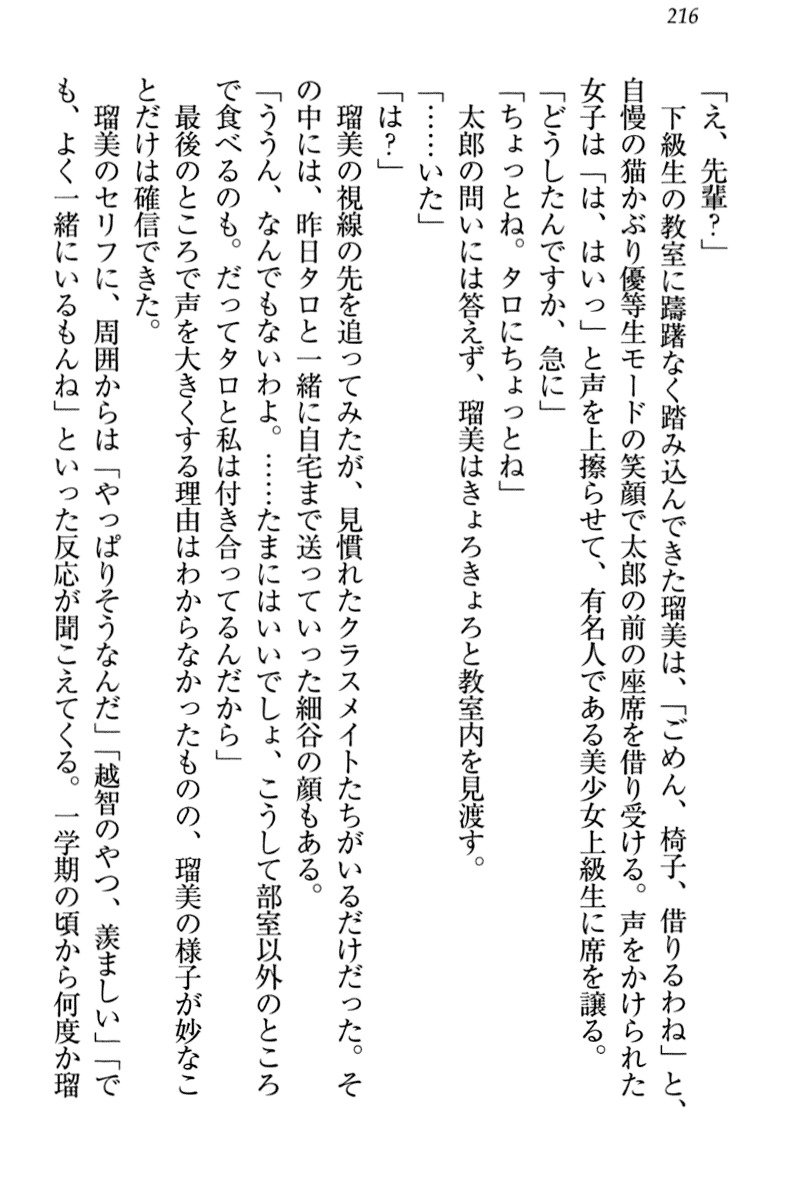 216
「え、先輩？」
　下級生の教室に躊躇なく踏み込んできた瑠美は、「ごめん、椅子、借りるわね」と、
自慢の猫かぶり優等生モードの笑顔で太郎の前の座席を借り受ける。声をかけられた
女子は「は、はいっ」と声を上擦らせて、有名人である美少女上級生に席を譲る。
「どうしたんですか、急に」
「ちょっとね。タロにちょっとね」
　太郎の問いには答えず、瑠美はきょろきょろと教室内を見渡す。
「……いた」
「は？」
　瑠美の視線の先を追ってみたが、見慣れたクラスメイトたちがいるだけだった。そ
の中には、昨日タロと一緒に自宅まで送っていった細谷の顔もある。
「ううん、なんでもないわよ。……たまにはいいでしょ、こうして部室以外のところ
で食べるのも。だってタロと私は付き合ってるんだから」
　最後のところで声を大きくする理由はわからなかったものの、瑠美の様子が妙なこ
とだけは確信できた。
　瑠美のセリフに、周囲からは「やっぱりそうなんだ」「越智のやつ、羨ましい」「で
も、よく一緒にいるもんね」といった反応が聞こえてくる。一学期の頃から何度か瑠